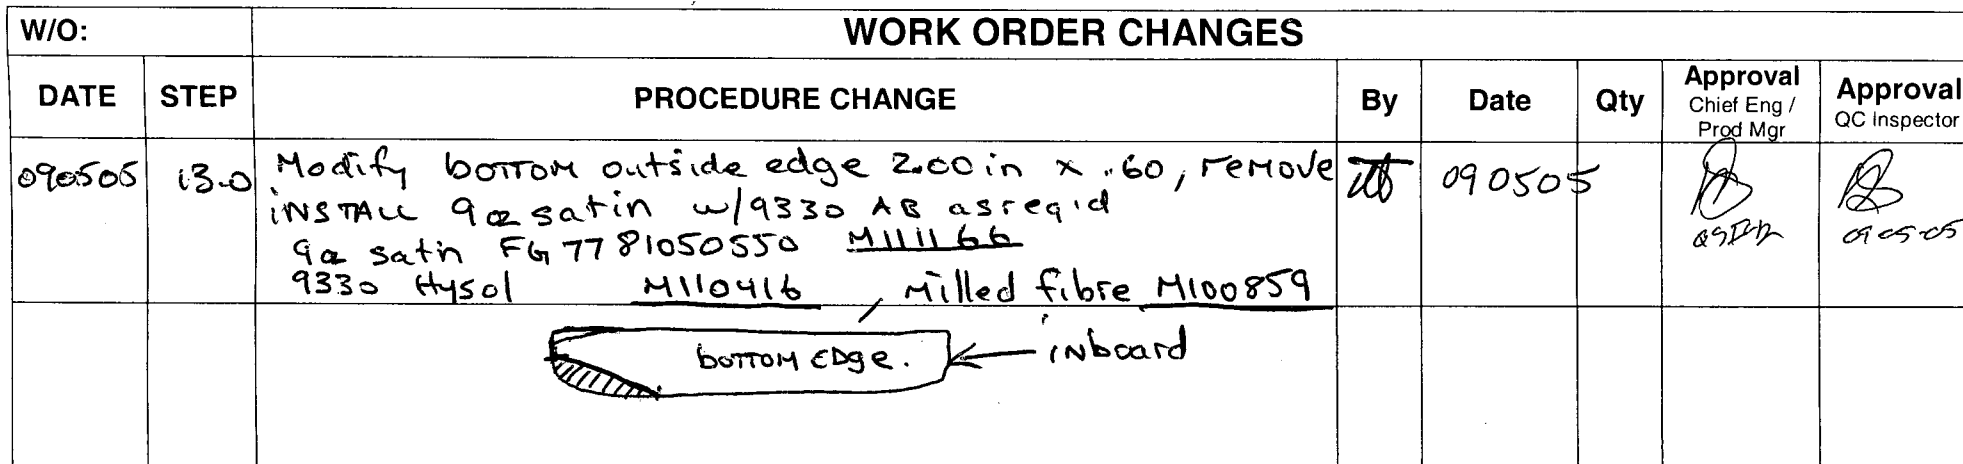 W/O: WORK ORDER CHANGES
DATE STEP PROCEDURE CHANGE By Date Qty Approval Chief Eng / Prod Mgr Approval QC Inspector
090505 13.0 Modify bottom outside edge 2.00in x .60, remove 090505
INSTALL 9oz satin w/9330 AB as req'd
9oz satin FG 7781050550 M111166 09-05-05
9330 Hysol M110416, Milled fibre M100859
bottom edge. inboard